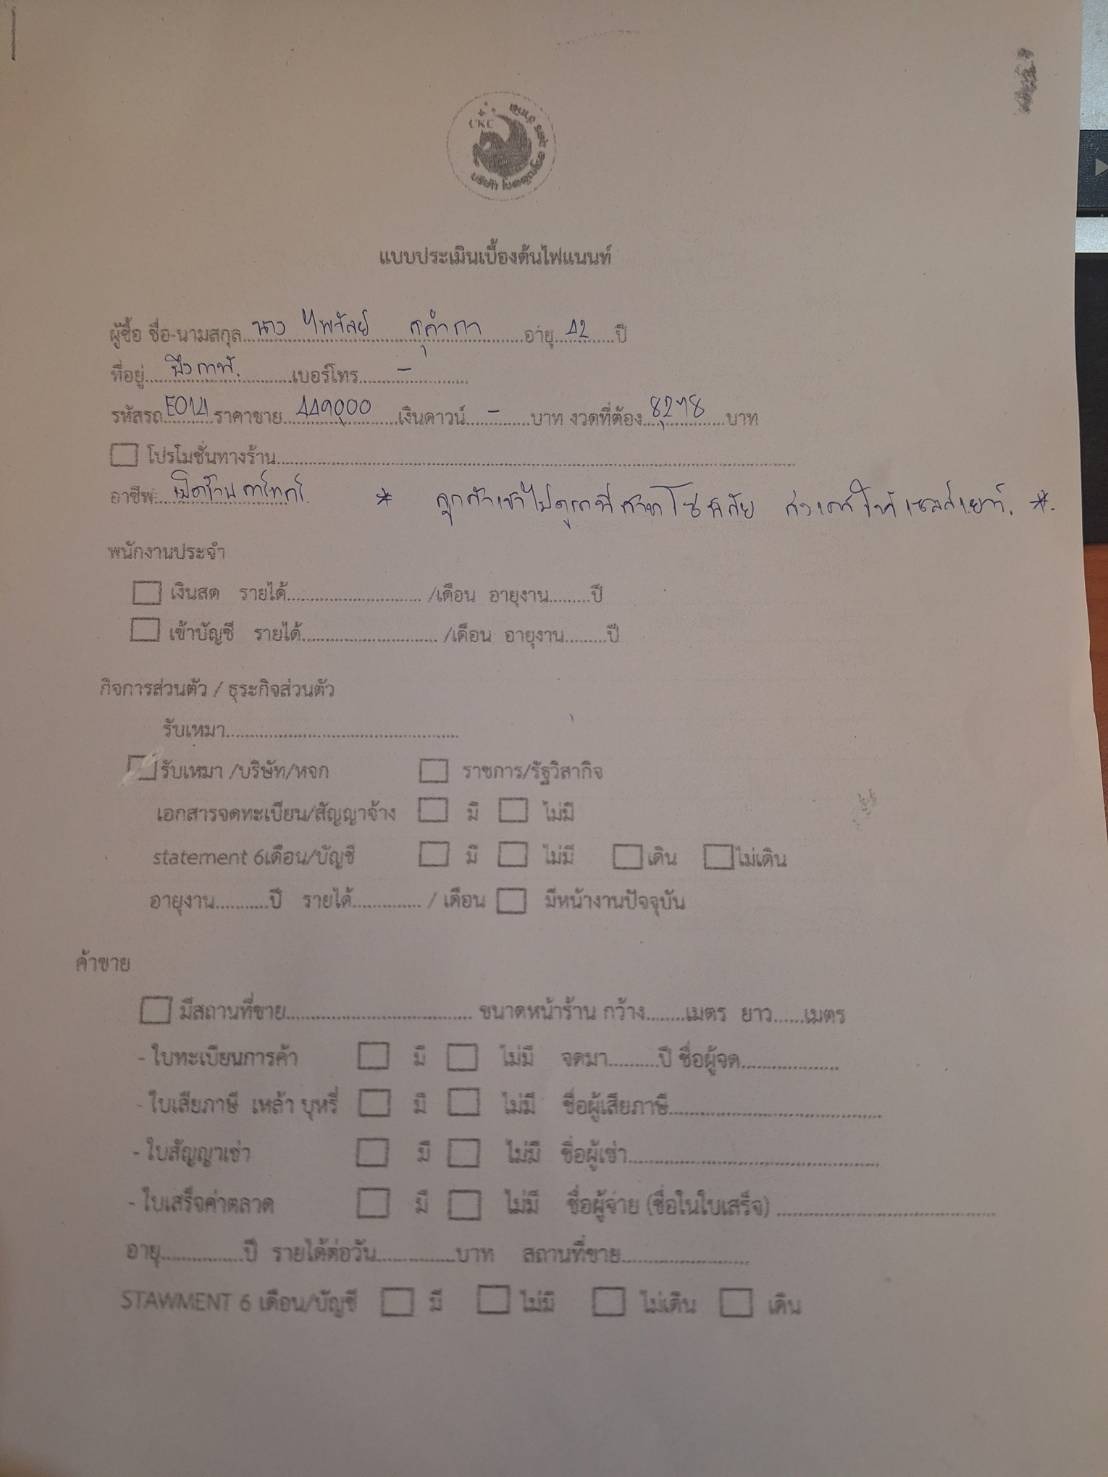 CKC
แบบประเมินเบื้องต้นไฟแนนท์
ผู้ซื้อ ชื่อ-นามสกุล นาง ไพรัลย์ อายุ 42 ปี
ที่อยู่ บึงกาฬ. เบอร์โทร -
รหัสรถ E014 ราคาขาย 449000 เงินดาวน์ - บาท งวดที่ต้อง 8,278 บาท
☐ โปรโมชั่นทางร้าน
อาชีพ เปิดร้าน
* ลูกค้าเข้าไปดูรถที่สาขาโชคชัย *
พนักงานประจำ
☐ เงินสด รายได้ /เดือน อายุงาน ปี
☐ เข้าบัญชี รายได้ /เดือน อายุงาน ปี
กิจการส่วนตัว / ธุระกิจส่วนตัว
รับเหมา
☐ รับเหมา /บริษัท/หจก ☐ ราชการ/รัฐวิสากิจ
เอกสารจดทะเบียน/สัญญาจ้าง ☐ มี ☐ ไม่มี
statement 6เดือน/บัญชี ☐ มี ☐ ไม่มี ☐ เดิน ☐ ไม่เดิน
อายุงาน ปี รายได้ / เดือน ☐ มีหน้างานปัจจุบัน
ค้าขาย
☐ มีสถานที่ขาย ขนาดหน้าร้าน กว้าง เมตร ยาว เมตร
- ใบทะเบียนการค้า ☐ มี ☐ ไม่มี จดมา ปี ชื่อผู้จด
- ใบเสียภาษี เหล้า บุหรี่ ☐ มี ☐ ไม่มี ชื่อผู้เสียภาษี
- ใบสัญญาเช่า ☐ มี ☐ ไม่มี ชื่อผู้เช่า
- ใบเสร็จค่าตลาด ☐ มี ☐ ไม่มี ชื่อผู้จ่าย (ชื่อในใบเสร็จ)
อายุ ปี รายได้ต่อวัน บาท สถานที่ขาย
STAWMENT 6 เดือน/บัญชี ☐ มี ☐ ไม่มี ☐ ไม่เดิน ☐ เดิน